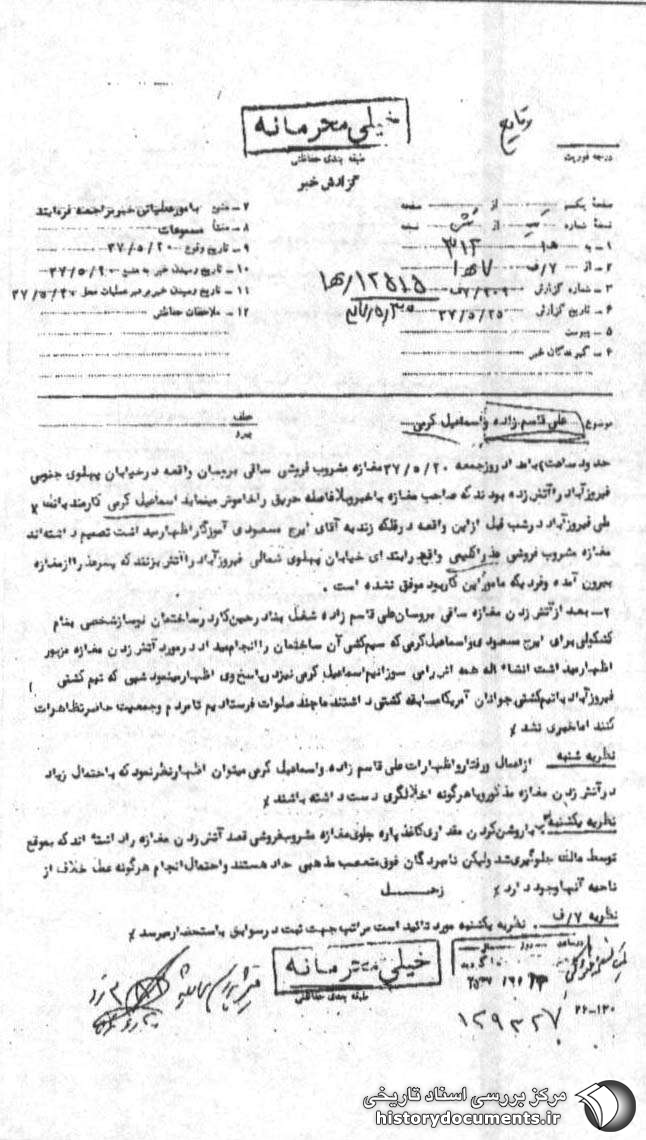 وقایع
خیلی محرمانه
درجه فوریت
طبقه بندی حفاظتی
گزارش خبر
صفحهٔ یکم از صفحه
نسخهٔ شماره از نسخه
۱ – به ۳۱۲
۲ – از ۷/ف
۳ – شماره گزارش
۴ – تاریخ گزارش ۳۷/۵/۲۵
۵ – پیوست
۶ – گیرندگان خبر
۱۲۵۱۵/ه‍۱
۷ – منبع بامورعملیاتی خبربراجعه فرمایند
۸ – منشأ مسموعات
۹ – تاریخ وقوع ۳۷/۵/۲۰
۱۰ – تاریخ رسیدن خبر به منبع ۳۷/۵/۲۰
۱۱ – تاریخ رسیدن خبر برهبر عملیات محل ۳۷/۵/۲۰
۱۲ – ملاحظات حفاظتی
موضوع علی قاسم زاده واسماعیل کرمی
عطف
پیرو
حدود ساعت بامداد روزجمعه ۳۷/۵/۲۰ مغازه مشروب فروشی ساقی بریسان واقعه درخیابان پهلوی جنوبی
فیروزآباد راآتش زده بودند که صاحب مغازه باخبروبلافاصله حریق راخاموش مینماید اسماعیل کرمی کارمند بانک
ملی فیروزآباد درشب قبل ازاین واقعه درفلکه زندبه آقای ایرج مسعودی آموزگاراظهارمیداشت تصمیم داشته‌اند
مغازه مشروب فروشی عذراکلیمی واقع رابتدای خیابان پهلوی شمالی فیروزآباد راآتش بزنند که پسرعذراازمغازه
بیرون آمده وفردیکه ماموراین کاربود موفق نشده است .
۲– بعد ازآتش زدن مغازه ساقی بروسان علی قاسم زاده شغل بنادرحین کاردرساختمان نوسازشخصی بنام
کشکولی برای ایرج مسعودی واسماعیل کرمی که سیم کشی آن ساختمان راانجام میداد درمورد آتش زدن مغازه مزبور
اظهارمیداشت انشاء اله همه اش رامی سوزانیم اسماعیل کرمی نیزدرپاسخ وی اظهارمینمود شبی که تیم کشتی
فیروزآباد باتیم کشتی جوانان آمریکا مسابقه کشتی داشتند ماچند صلوات فرستادیم تامردم وجمعیت حاضرتظاهرات
کنند اماخبری نشد
نظریه شنبه ازاعمال ورفتارواظهارات علی قاسم زاده واسماعیل کرمی میتوان اظهارنظرنمود که باحتمال زیاد
درآتش زدن مغازه مذکورویاهرگونه اخلالگری دست داشته باشند
نظریه یکشنبه باروشن کردن مقداری کاغذ پاره جلوی مغازه مشروب فروشی قصد آتش زدن مغازه راداشته اند که بموقع
توسط مالک جلوگیری شد ولیکن نامبردگان فوق متعصب مذهبی حاد هستند واحتمال انجام هرگونه عمل خلاف از
ناحیه آنها وجود دارد زحل
نظریه ۷/ف . نظریه یکشنبه مورد تائید است مراتب جهت ثبت درسوابق باستحضارمیرسد
خیلی محرمانه
طبقه بندی حفاظتی
۲۶–۱۳۰
۱۲۹۳۲۷
مرکز بررسی اسناد تاریخی
historydocuments.ir